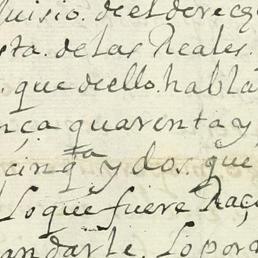 luisio. de el derecq
sta. de las Reales.
. que de ello. habla
nça quarenta y
cinqta y dos. que
Lo que fuere Raço
andarle. Lo por a